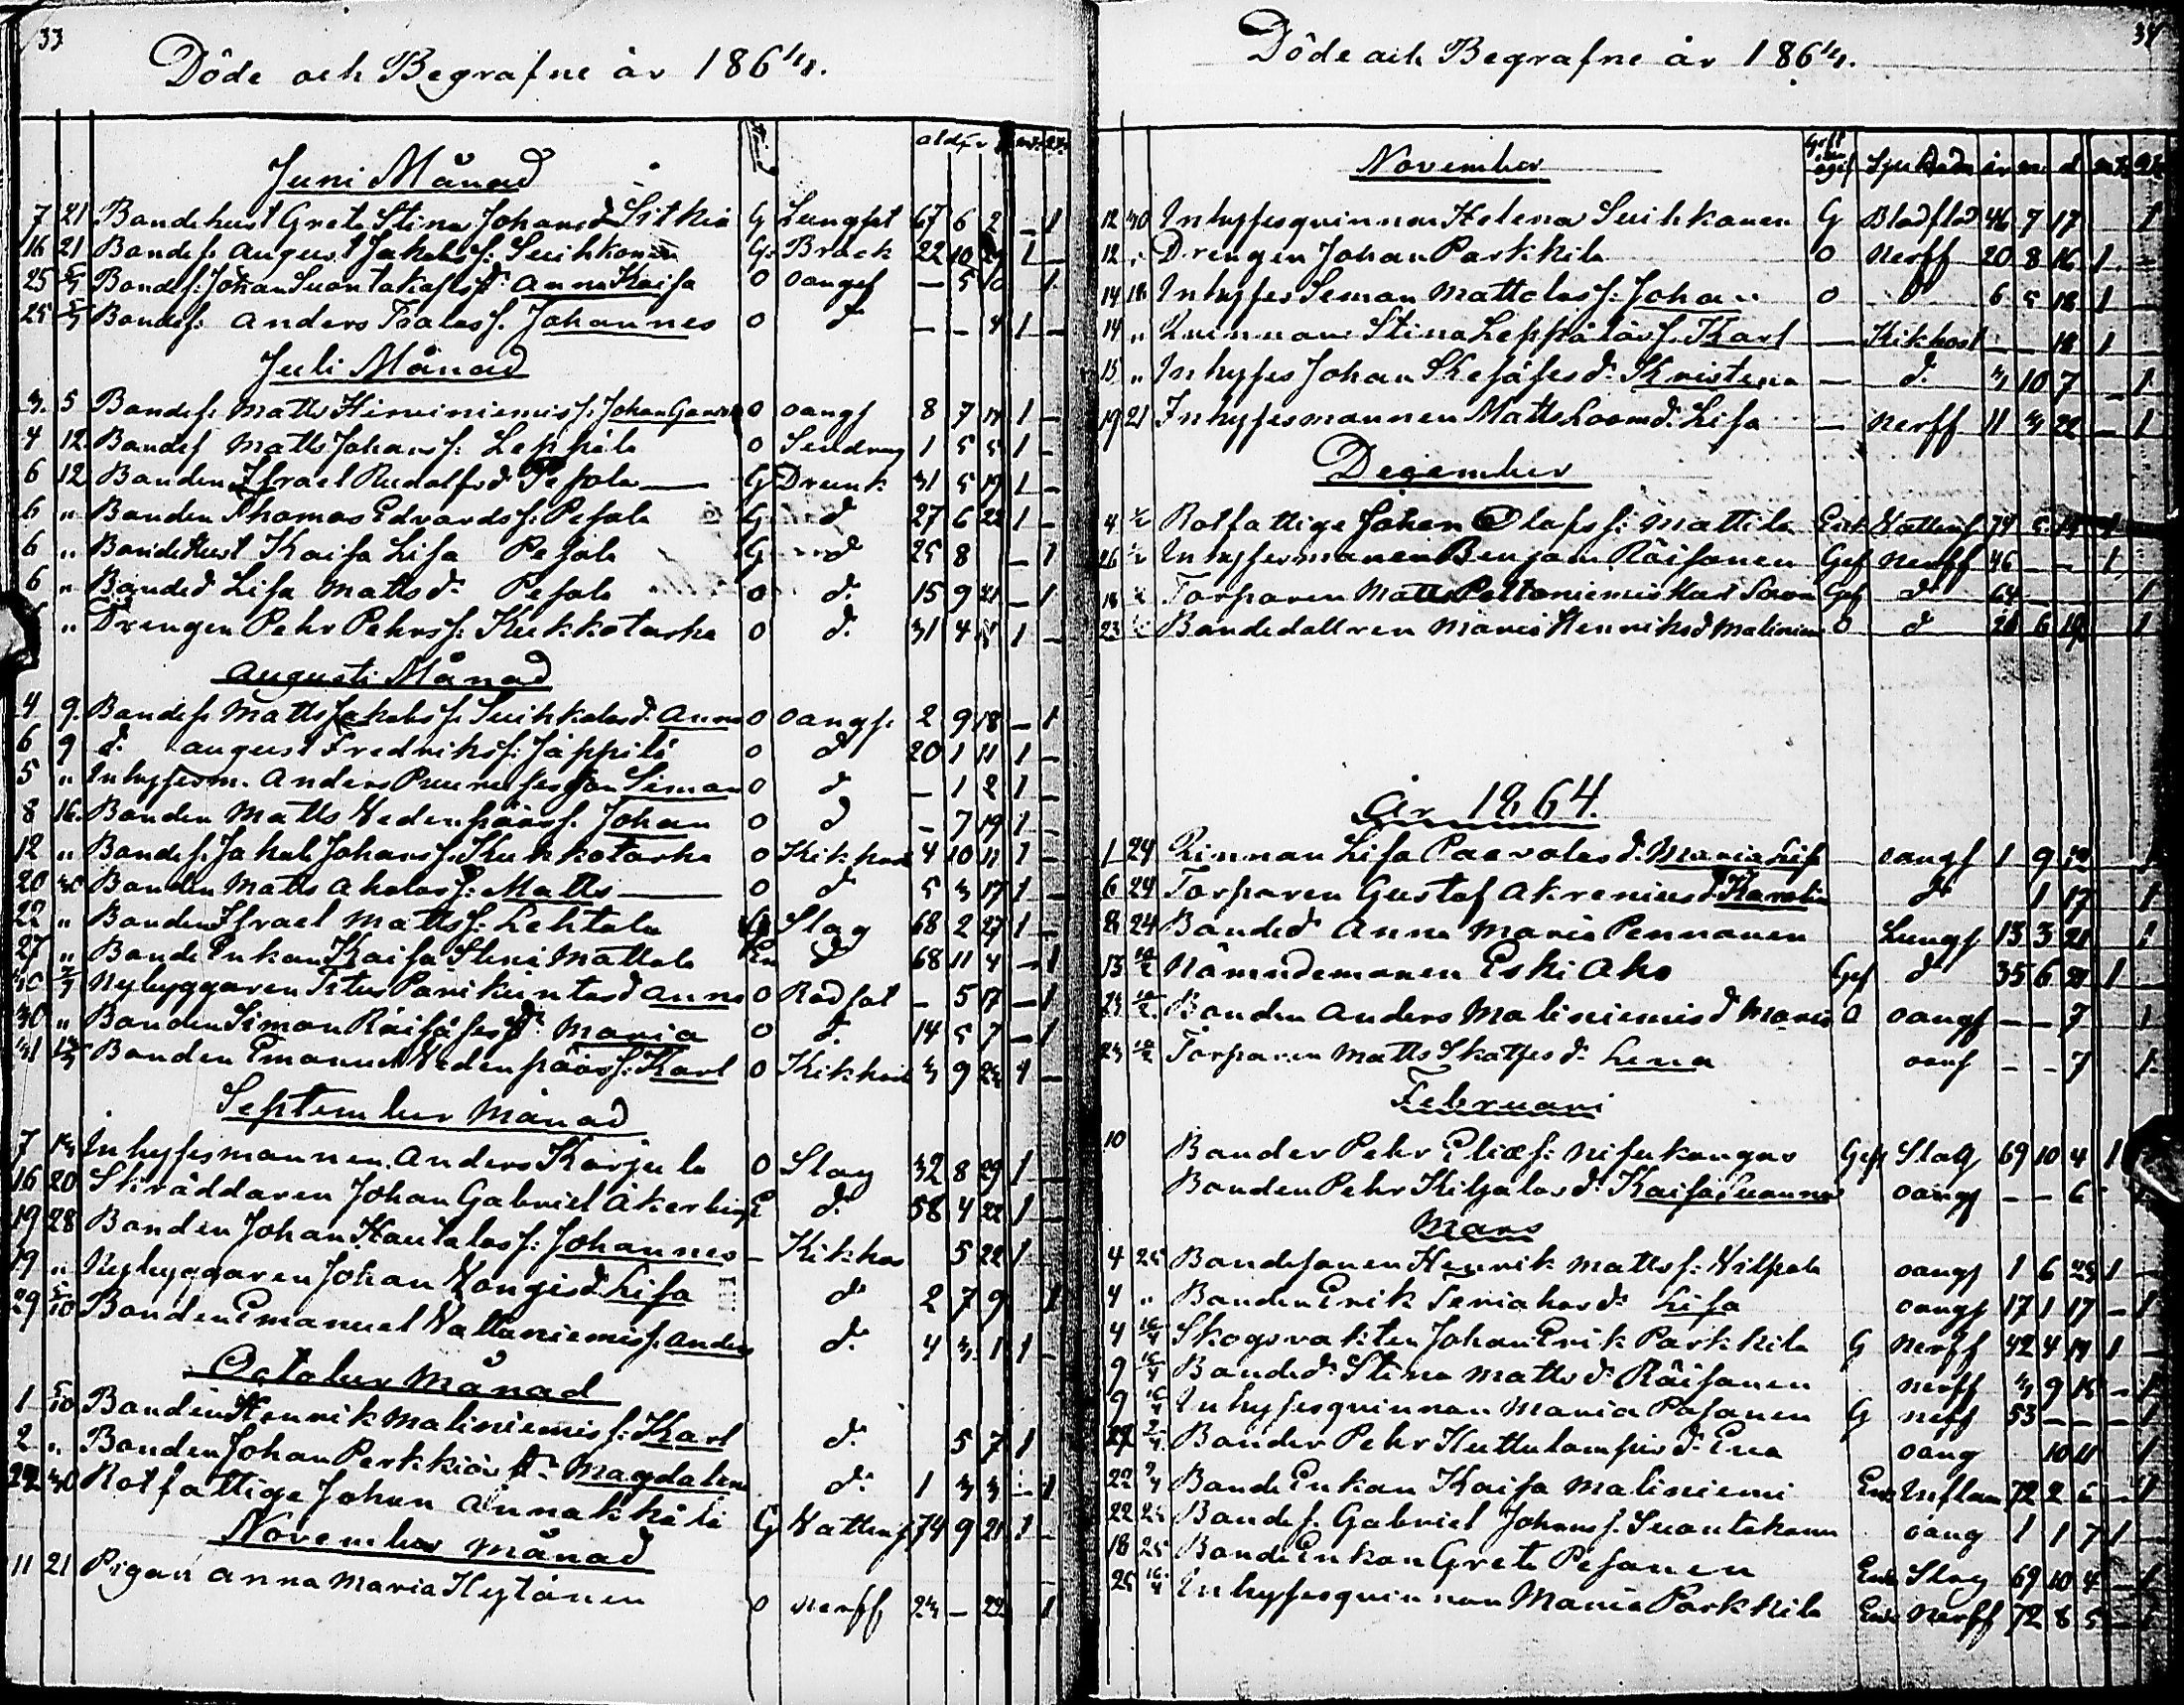 33
Döde och Begrafne år 1864.
alder m. qv.
Juni Månad
7 21 Bondehust Greta Stina Johansd Sitkiä G Lungsot 67 6 2 – 1
16 21 Bondes. August Jakobss. Suihkonen G. Bråck 22 10 1 –
25 Bondes: Johan Suontakas d: Anna Kaisa O oangif – 5 10 1
25 Bondes: Anders Isalas s. Johannes O d: – – 4 1 –
Juli Månad
3. 5 Bondes. Matts Hirviniemis s. Johan O oangf 8 7 1 –
4 12 Bondes Matts Johans s: Leppälä O 1 5 5 1 –
6 12 Bonden Israel Rudolfsd Pesola — G Drunk 31 5 19 1 –
6 " Bonden Thomas Edvards s. Pesola G d 27 6 22 1 –
6 " Bondehust Kaisa Lisa Pesola G d 25 8 – 1
6 " Bonded Lisa Mattsd: Pesola O d: 15 9 21 – 1
" Drengen Pehr Pehrs s: Kukkotarha O d. 31 4 1 –
Augusti Månad
4 9. Bondes. Matts Jakobs s. Suihkolas d: Anna O oangf. 2 9 18 – 1
6 9 d: August Fredriks s: Jäppilä O d 20 1 11 1 –
5 " Inhysesm. Anders son Simon O d – 1 2 1 –
8 16. Bonden Matts Vedenpääs s. Johan O d – 7 19 1 –
12 " Bondes. Jakob Johans s. Kukkotarha O Kikhost 4 10 11 1 –
20 30 Bonden Matts Aholas s: Matts — O d 5 3 17 1 –
22 " Bonden Israel Matts s: Lehtola G Slag 68 2 27 1 –
27 " Bonde Enkan Kaisa Stina Mattola En d 68 11 4 – 1
30 Nybyggaren Titus d Anna O Rödsot – 5 17 – 1
30 " Bonden Simon Räisäses d: Maria O d. 14 5 7 – 1
31 Bonden Emanuel Vedenpääs s: Karl O Kikhost 3 9 23 1 –
September Månad
7 13 Inhysesmannen Anders Karjula O Slag 32 8 29 1
16 20 Skräddaren Johan Gabriel Åkerling E d: 58 4 22 1 –
19 28 Bonden Johan Hautalas s: Johannes – Kikhos 5 22 1
19 " Nybyggaren Johan Kangis d: Lisa d: 2 7 9 1
29 5/10 Bonden Emanuel Vattaniemis s. Anders d: 4 3. 1 1 –
October Månad
1 5/10 Bonden Henrik Maliniemis s: Karl d: 5 7 1
2 " Bonden Johan Perkkiös d: Magdalena d: 1 3 3 – 1
22 30 Rotfattige Johan Annakkala G Vattens 74 9 21 1 –
November Månad
11 21 Pigan Anna Maria Kytänen O nerff 23 – 22 1
34
Döde och Begrafne år 1864.
November Gift eller ogif Sjukdom år m d mk qk
12 30 Inhysesqvinnan Helena Suihkonen G Blodflod 46 7 17 1
12 " Drengen Johan Parkkila O Nerff 20 8 16 1 –
14 18 Inhyses Simon Mattolas s: Johan O d 6 5 18 1
14 " Kvinnan Stina Leppäläs s. Karl – Kikhost – – 18 1
15 " Inhyses Johan Kesäses d: Kristina – d. 3 10 7 – 1
19 21 Inhysesmannen Matts Looms d. Lisa – Nerff 11 3 22 – 1
December
4 Rotfattige Johan Olofs s: Mattila Enk Vattens 74 1
26 Inhysesmannen Benjam Räisänen Gif Nerff 46 – – 1
18 Torparen Matts Peltoniemis Gif d 64 – – 1
23 Bondedottren Maria Henriksd Malinien O d 20 6 19 1
År 1864.
1 24 Qinnan Lisa Paavolas d: Maria Lisa oangf 1 9 12 1
6 24 Torparen Gustaf Akrenius d. Karolin d: 1 17 1
8 24 Bonded Anna Maria Pennanen Lungs 13 3 21 1
13 Nämndemannen Eski Aho Gif d 35 6 21 1
23 Bonden Anders Maliniemis d Maria O oangf – – 7 1
23 Torparen Matts d: Lena oanf – – 7 1
Februari
10 Bonden Pehr Elias s: Nisukangas Gif Slag 69 10 4 1
Bonden Pehr Kiljalas d: Kaisa Susanna oangf – – 6 1
Mars
4 25 Bondesonen Henrik Matts s: Vilpola oangf 1 6 23 1 –
4 " Bonden Erik d: Lisa oangf 17 1 17 – 1
4 Skogsvakten Johan Erik Parkkila G Nerff 42 4 19 1
9 Bonded: Stina Mattsd: Räisänen nerff 3 9 15 – 1
9 Inhysesqvinnan Maria Pasanen G neff 53 – – – 1
22 Bonden Pehr Kuttulampis d: Eva oang 10 11 1
22 Bonde Enkan Kaisa Maliniemi Enk Inflam 72 2 6 – 1
22 25 Bondes. Gabriel Johans s. Suontakann oang 1 1 7 1
18 25 Bonde Enkan Greta Pesonen Enk Slag 69 10 4 – 1
25 Inhysesqvinnan Maria Parkkila Enk Nerff 72 8 5 – 1